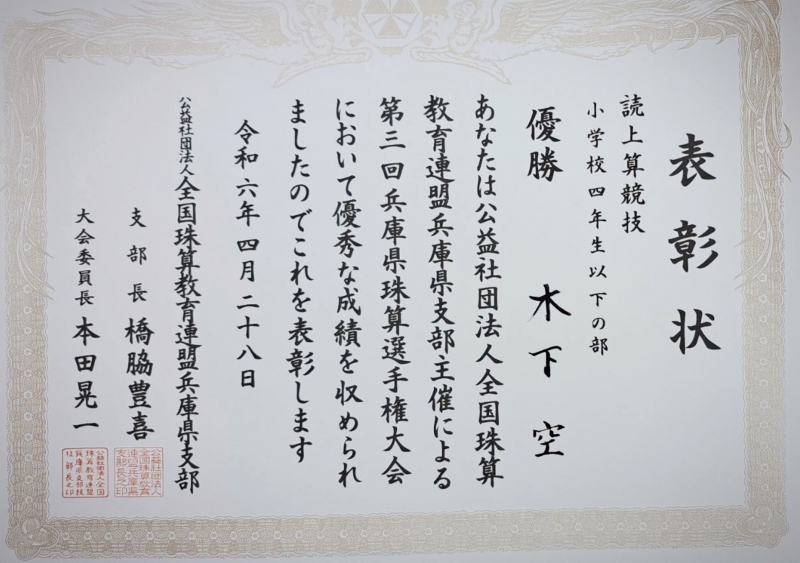 表彰状
読上算競技
小学校四年生以下の部
優勝 木下 空
あなたは公益社団法人全国珠算
教育連盟兵庫県支部主催による
第三回兵庫県珠算選手権大会
において優秀な成績を収められ
ましたのでこれを表彰します
令和六年四月二十八日
公益社団法人全国珠算教育連盟兵庫県支部
支部長 橋脇豊喜
大会委員長 本田晃一